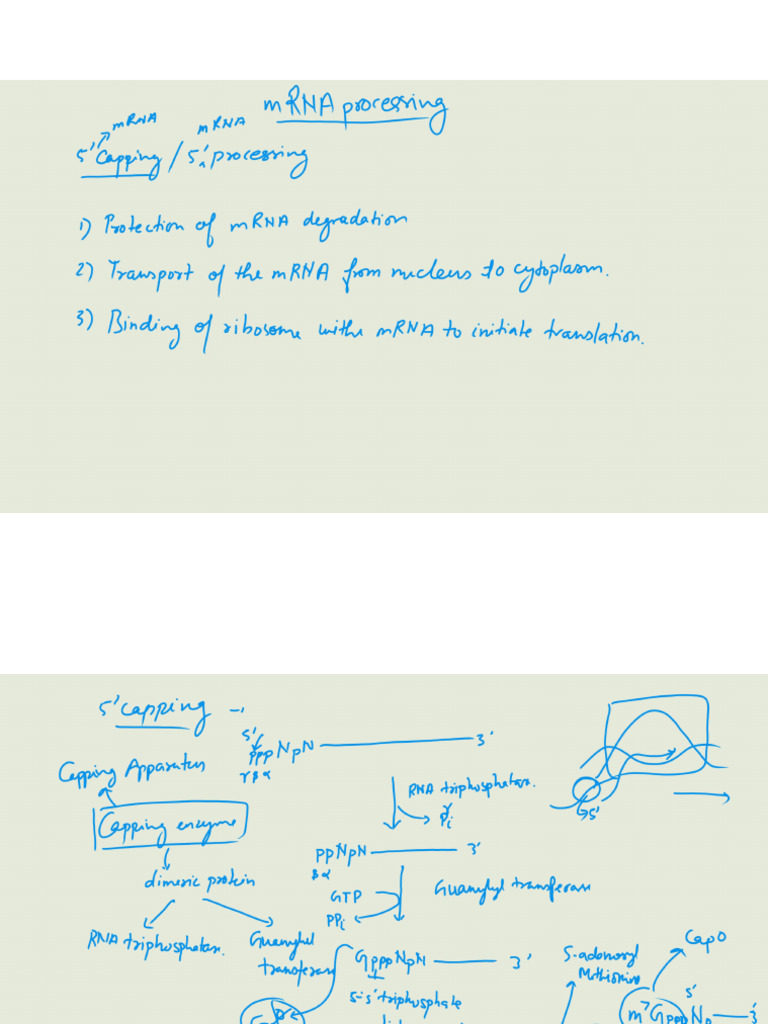 mRNA processing
mRNA mRNA
5' Capping / 5' processing
1) Protection of mRNA degradation
2) Transport of the mRNA from nucleus to cytoplasm.
3) Binding of ribosome with mRNA to initiate translation.
5' Capping -
5'
pppNpN 3'
γβα
Capping Apparatus
RNA triphosphatase.
Pi
Capping enzyme
5'
ppNpN 3'
βα
dimeric protein
GTP
Guanylyl transferase
PPi
RNA triphosphatase.
Guanylyl
transferase
GpppNpN 3'
5'-5' triphosphate
S-adenosyl
Methionine
Cap0
5'
m7GpppNp 3'